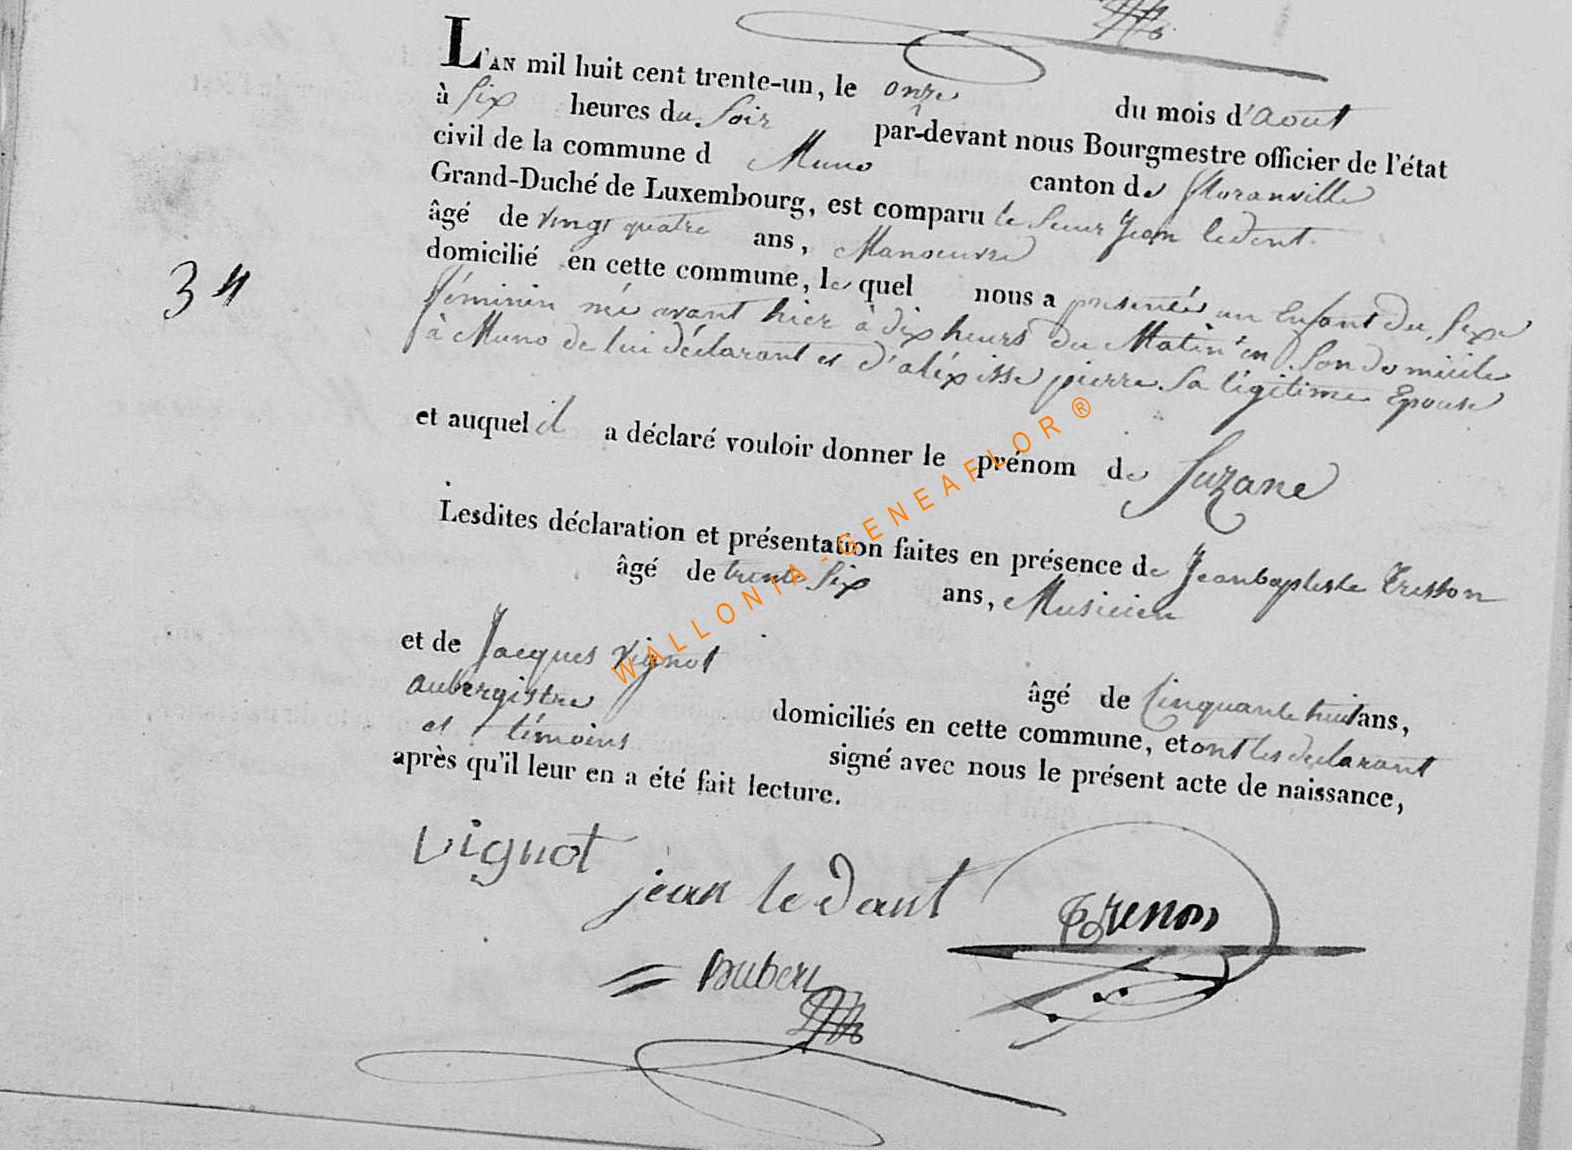 L'AN mil huit cent trente-un, le onze du mois d'aout
à six heures du soir par-devant nous Bourgmestre officier de l'état
civil de la commune d Muno canton de floranville
Grand-Duché de Luxembourg, est comparu le sieur Jean ledent
âgé de vingt quatre ans, Manoeuvre
domicilié en cette commune, le quel nous a presenté un Enfant du sexe
féminin né avant hier à dix heurs du Matin en son domicile
à Muno de lui déclarant et d'aléxisse pierre sa légitime Epouse
et auquel il a déclaré vouloir donner le prénom de Suzane
Lesdites déclaration et présentation faites en présence de Jeanbaptiste
âgé de trente six ans, Musicien
et de Jacques Vignot âgé de Cinquante huit ans,
aubergistre domiciliés en cette commune, et ont les declarant
et témoins signé avec nous le présent acte de naissance,
après qu'il leur en a été fait lecture.
34
Vignot
jean le dant
WALLONIA-GENEAFLOR ®